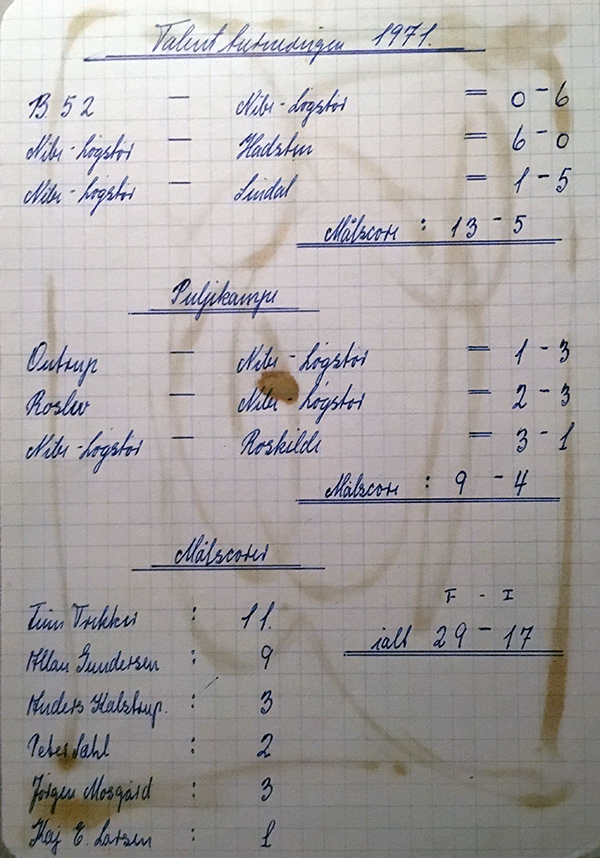 Talentturneringen 1971.
B 52 — Nibe-Løgstør = 0 - 6
Nibe-Løgstør — Hadsten = 6 - 0
Nibe-Løgstør — Lindal = 1 - 5
Målscore : 13 - 5
Puljekampe
Outrup — Nibe-Løgstør = 1 - 3
Roslev — Nibe-Løgstør = 2 - 3
Nibe-Løgstør — Roskilde = 3 - 1
Målscore : 9 - 4
Målscorer
F - I
: 11.
ialt 29 - 17
Allan Gundersen : 9
Anders Kalstrup. : 3
Peter Dahl : 2
Jørgen Mosgård : 3
Kaj E. Larsen : 1